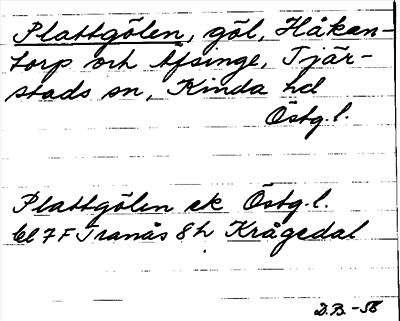 Plattgölen, göl, Håkan-
torp och Åfsinge, Tjär-
stads sn, Kinda hd
Östg.l.
Plattgölen ek Östg.l.
bl 7F Tranås 8h Krågedal
D.B. -58